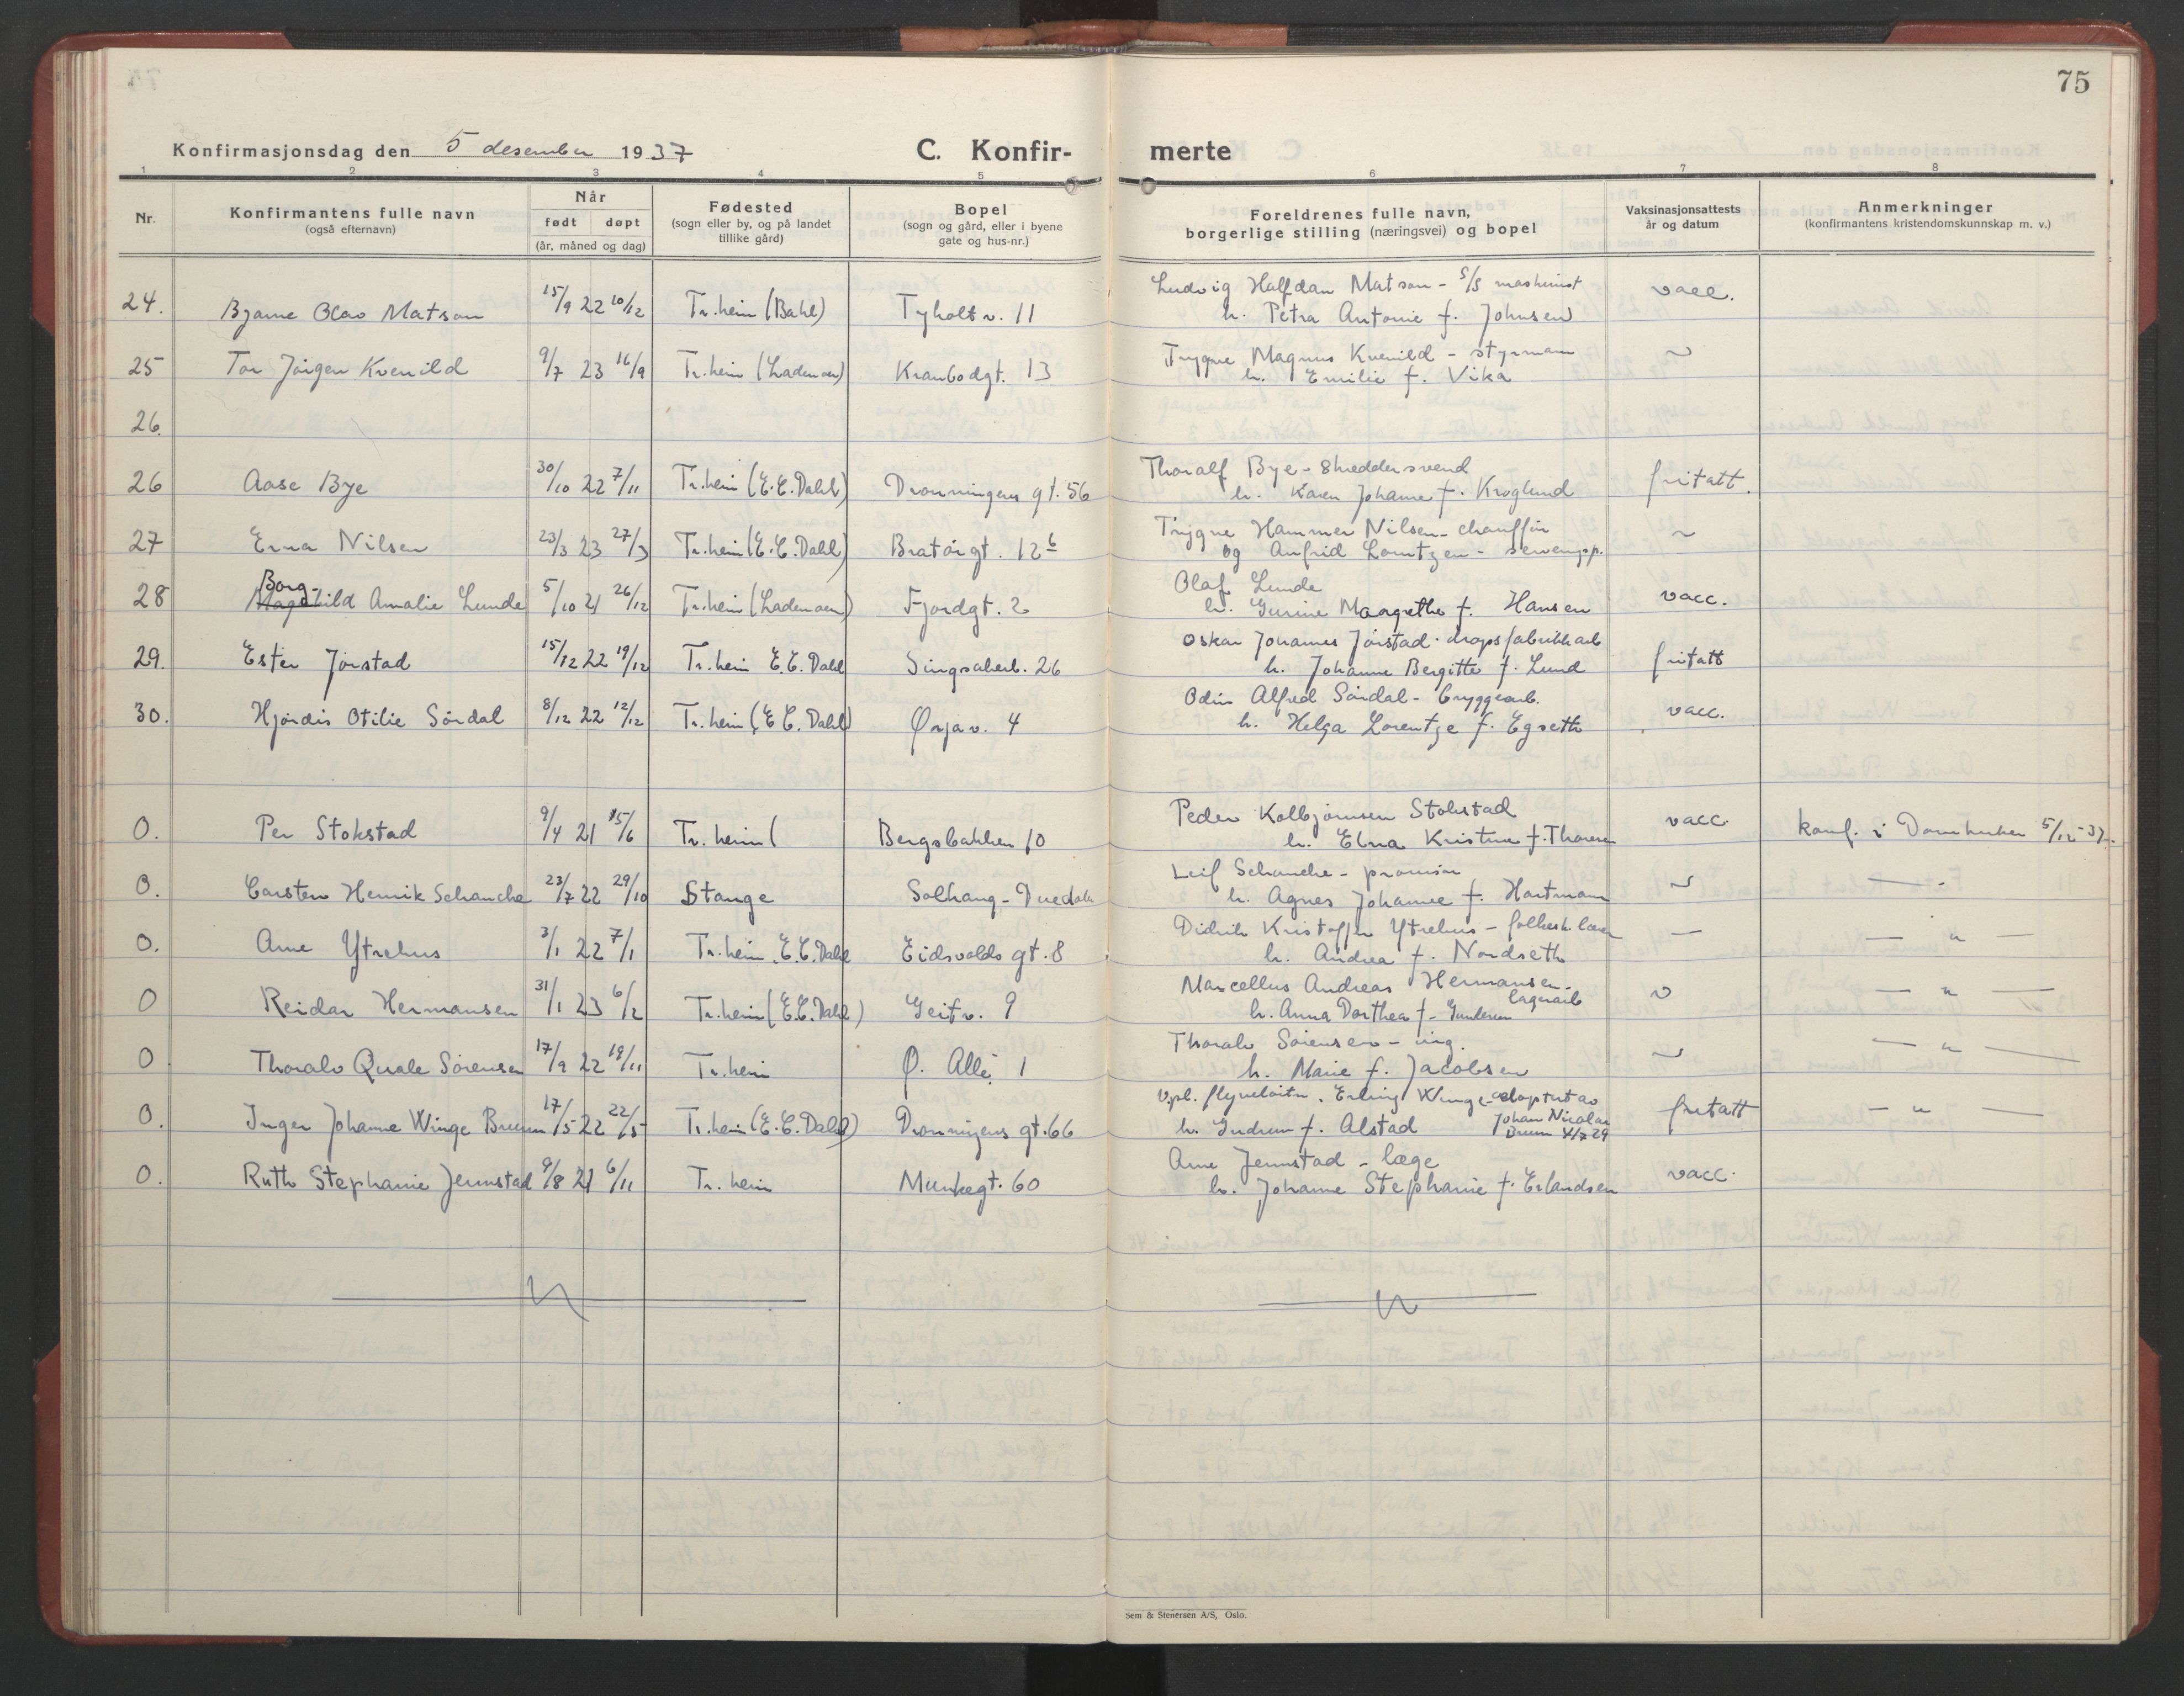 75
Konfirmasjonsdag den 5 desember 1937
C. Konfir-merte
1 2 3 4 5 6 7 8
Nr.
Konfirmantens fulle navn
(også efternavn)
Når
født døpt
(år, måned og dag)
Fødested
(sogn eller by, og på landet
tillike gård)
Bopel
(sogn og gård, eller i byene
gate og hus-nr.)
Foreldrenes fulle navn,
borgerlige stilling (næringsvei) og bopel
Vaksinasjonsattests
år og datum
Anmerkninger
(konfirmantens kristendomskunnskap m. v.)
24. Bjarne Olav Matson 15/9 22 10/12 Tr.heim (Bakl) Tyholtv. 11 Ludvig Halfdan Matson - S/S maskinist vacc.
h. Petra Antonie f. Johnsen
25 Tor Jörgen Kvenild 9/7 23 16/9 Tr.heim (Lademoen) Krambodgt. 13 Trygve Magnus Kvenild - styrmann ~
h. Emilie f. Vika
26.
26 Aase Bye 30/10 22 7/11 Tr.heim (E.C. Dahl) Dronningens gt. 56 Thoralf Bye - Skreddersvend fritatt.
h. Karen Johanne f. Kroglund
27 Erna Nilsen 23/3 23 27/3 Tr.heim (E.C. Dahl) Bratörgt. 12 b Trygve Hammer Nilsen - chauffør ~
og Anfrid Lorntzen - serveropp.
28 Borghild Amalie Lunde 5/10 21 26/12 Tr.heim (Lademoen) Fjordgt. 2 Olaf Lunde vacc.
h. Gurine Margrethe f. Hansen
29. Ester Jörstad 15/12 22 19/12 Tr.heim E.C. Dahl Singsakerb. 26 Oskar Johannes Jörstad - dropsfabrikkarb fritatt
h. Johanne Bergitte f. Lund
30. Hjördis Otilie Sördal 8/12 22 12/12 Tr.heim (E.C. Dahl) Ørjav. 4 Odin Alfred Sördal - bryggearb. vacc.
h. Helga Lorentze f. Egseth
0. Per Stokstad 9/4 21 15/6 Tr.heim ( Bergsbakken 10 Peder Kolbjörnsen Stokstad vacc. konf. i Domkirken 5/12-37.
h. Edna Kristine f. Thoresen
0. Carsten Henrik Schanche 23/7 22 29/10 Stange Solhaug - Leif Schanche - provisor ~ —
h. Agnes Johanne f. Hartmann
0. Arne Ytrehus 3/1 22 7/1 Tr.heim E.C. Dahl Eidsvolds gt. 8 Didrik Kristoffer Ytrehus - folkesk. lærer — — " —
h. Andrea f. Nordseth
0 Reidar Hermansen 31/1 23 6/2 Tr.heim (E.C. Dahl) Geitv. 9 Marcellus Andreas Hermansen - lagerarb ~ — " —
h. Anna Dorthea f. Gundersen
0. Thoralv Qvale Sörensen 17/9 22 19/11 Tr.heim Ø. Allé 1 Thoralv Sörensen - ing. ~ — " —
h. Marie f. Jacobsen
0. Inger Johanne Winge Bruun 17/5 22 22/5 Tr.heim (E.C. Dahl) Dronningens gt. 66 V.pl. flyveløitn. Erling Winge - adoptert av fritatt — " —
h. Gudrun f. Alstad Johan Nicolai
Bruun 4/7 29
0. Ruth Stephanie Jermstad 9/8 21 6/11 Tr.heim Munkegt. 60 Arne Jermstad - læge vacc.
h. Johanne Stephanie f. Erlandsen
Sem & Stenersen A/S, Oslo.